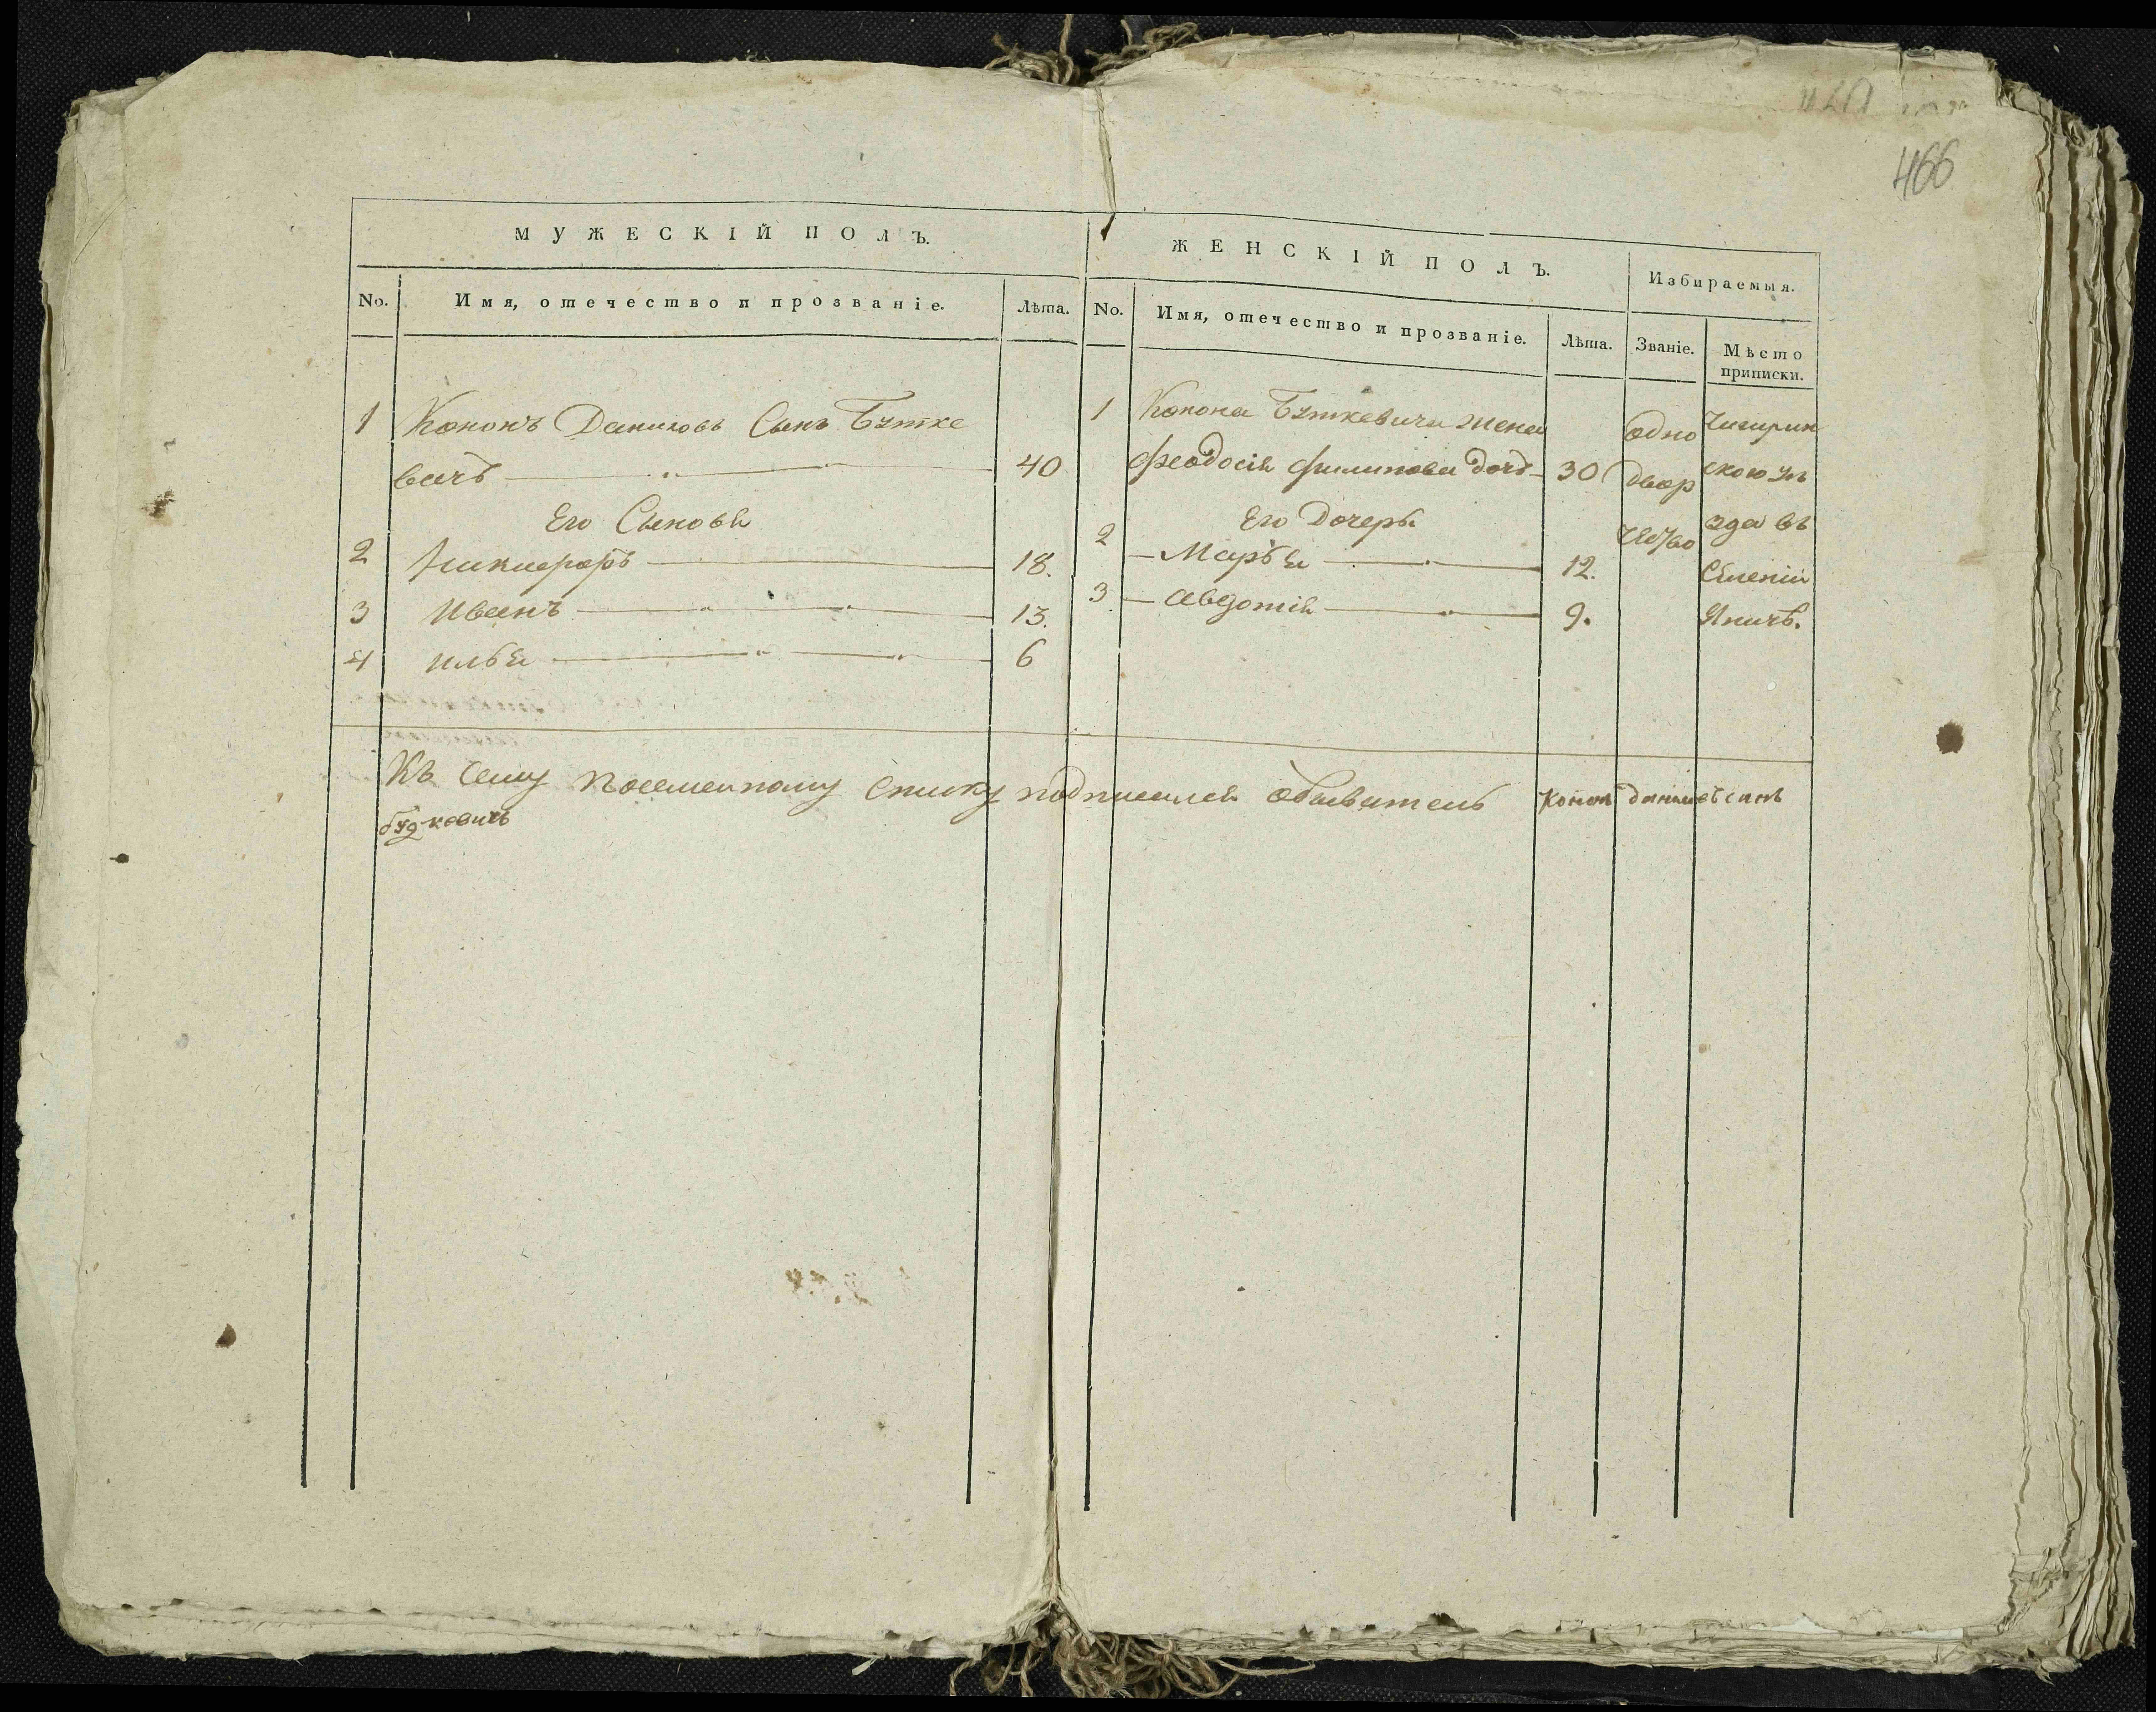 466
МУЖЕСКІЙ ПОЛЪ.
No. Имя, отечество и прозваніе. Лѣта.
1 Кононъ Даниловъ Сынъ Бутке
вичъ 40
Его Сыновья
2 Никифоръ 18.
3 Иванъ 13.
4 Илья 6
ЖЕНСКІЙ ПОЛЪ.
No. Имя, отечество и прозваніе. Лѣта.
1 Конона Буткевича жена
Феодосія Филипова дочь 30
Его Дочери
2 Марья 12.
3 Авдотія 9.
Избираемыя.
Званіе.
одно
двор
Мѣсто
приписки.
Чигирин
ского уѣ
зда въ
Селеніи
Яничѣ.
Къ сему посемейному списку подписался обыватель Конон даниловъ синъ
будкевичъ